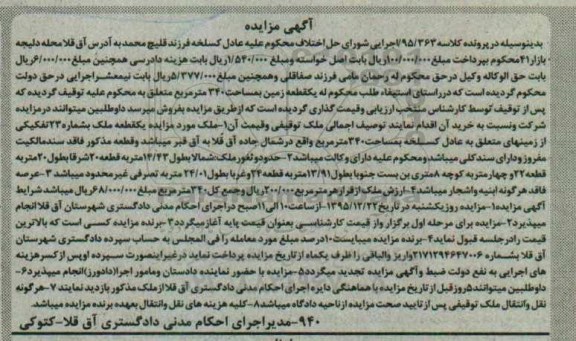 آگهی مزایده
بدینوسیله در پرونده کلاسه ۹۵/۳۶۳/اجرایی شورای حل اختلاف محکوم علیه عادل کسلخه فرزند قلیچ محمد به آدرس آق قلا محله دلیجه
بازار ۴۱ محکوم بپرداخت مبلغ ۱۰۰/۰۰۰/۰۰۰ریال بابت اصل خواسته ومبلغ ۱/۵۴۰/۰۰۰ریال بابت هزینه دادرسی همچنین مبلغ ۶/۰۰۰/۰۰۰ریال
بابت حق الوکاله وکیل درحق محکوم له رحمان مامی فرزند صفاقلی وهمچنین مبلغ ۵/۳۷۷/۰۰۰ریال بابت نیمعشر اجرایی در حق دولت
محکوم گردیده است که در راستای استیفاء طلب محکوم له یکقطعه زمین بمساحت ۳۴۰ مترمربع متعلق به محکوم علیه توقیف گردیده که
پس از توقیف توسط کارشناس منتخب ارزیابی وقیمت گذاری گردیده است که از طریق مزایده بفروش میرسد داوطلبین میتوانند در مزایده
شرکت ونسبت به خرید آن اقدام نمایند توصیف اجمالی ملک توقیفی وقیمت آن ۱-ملک مورد مزایده یکقطعه ملک بشماره ۲۳ تفکیکی
از زمینهای متعلق به عادل کسلخه بمساحت ۳۴۰ مترمربع واقع در شمال جاده آق قلا به آق قبر میباشد وقطعه مذکور فاقد سند مالکیت
مفروز ودارای سند کلی میباشد ومحکوم علیه دارای وکالت میباشد ۲-حدود ثغور ملک شمالا بطول ۱۴/۴۳متر به قطعه ۲۰ شرقا بطول ۲۰متر به
قطعه ۲۲ و چهار متر به کوچه ۸ متری بن بست جنوبا بطول ۱۳/۹۱متر به قطعه ۲۴ وغربا بطول ۲۴/۰۱ متر به تصرفی غیر محدود میباشد ۳-عرصه
فاقد هر گونه ابنیه واشجار میباشد ۴-ارزش ملک از قرار هر مترمربع ۲۰۰/۰۰۰ریال وجمع کل ۳۴۰ مترمربع مبلغ ۶۸/۰۰۰/۰۰۰ریال میباشد شرایط
آگهی مزایده ۱-مزایده روز یکشنبه در تاریخ ۱۳۹۵/۱۲/۲۲ از ساعت ۱۰ الی ۱۱ صبح در اجرای احکام مدنی دادگستری شهرستان آق قلا انجام
میپذیرد ۲-مزایده برای مرحله اول برگزار واز قیمت کارشناسی بعنوان قیمت پایه آغاز میگردد ۳-برنده مزایده کسی است که بالاترین
قیمت را در جلسه قبول نماید ۴-برنده مزایده میبایست ۱۰ درصد مبلغ مورد معامله را فی المجلس به حساب سپرده دادگستری شهرستان
آق قلا بشماره ۲۱۷۱۲۹۴۶۴۷۰۰۶ واریز والباقی را ظرف یکماه از تاریخ مزایده پرداخت نماید در غیر اینصورت سپرده او پس از کسر هزینه
های اجرایی به نفع دولت ضبط وآگهی مزایده تجدید میگردد ۵-مزایده با حضور نماینده دادستان ومامور اجرا(دادورز) انجام میپذیرد ۶-
داوطلبین میتوانند ۵ روز قبل از تاریخ مزایده با هماهنگی دایره اجرای احکام مدنی دادگستری آق قلا از ملک مذکور بازدید نمایند ۷-هر گونه
نقل وانتقال ملک توقیفی پس از تایید صحت مزایده از ناحیه دادگاه میباشد ۸-کلیه هزینه های نقل وانتقال بعهده برنده مزایده میباشد.
۹۴۰-مدیر اجرای احکام مدنی دادگستری آق قلا-کتوکی